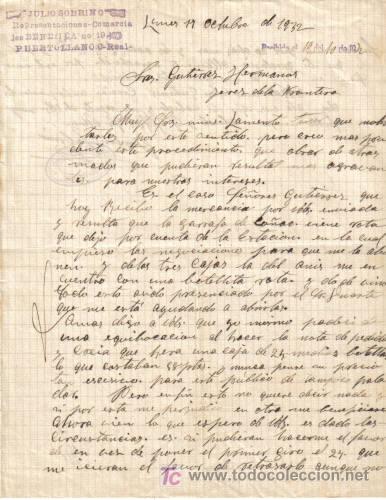 JULIO SOBRINO
Representaciones - Comercio
PUERTOLLANO
Lunes 17 Octubre de 1932
Recibido el
Sres. Gutiérrez Hermanos
Jerez de la Frontera
Muy Sres. mios: Lamento tener que moles
tarle por este sentido pero creo mas
dente este procedimiento que obrar de otras
que pudieran resultar mas
para nuestros intereses.
Es el caso Señores Gutierrez que
hoy Recibo la mercancia por Vds. enviada
y resulta que la garrafa Coñac viene rota
que dejo por cuenta de la Estacion en la cual
empiezo las negociaciones para que me la abo
nen y de las tres Cajas la del anis me en
cuentro con una botellita rota y
todo esto sido presenciado por el Sr.
que me está ayudando a abrirlas.
a Vds. que yo mismo padecí
una equibocacion al hacer la nota de pedido
y Creia que hera una caja de 24 medias botellas
lo que costaban 58 ptas. nunca pense un precio
para este publico de
Pero en fin esto no quiere decir nada y
si por esta me en otra me beneficiare
Ahora vien lo que espero de Vds. es dado las
Circustancias es si pudieran hacerme el favor
de en ves de poner el primer giro el 24 que
me icieran el favor de retrasarlo aunque no
todocoleccion